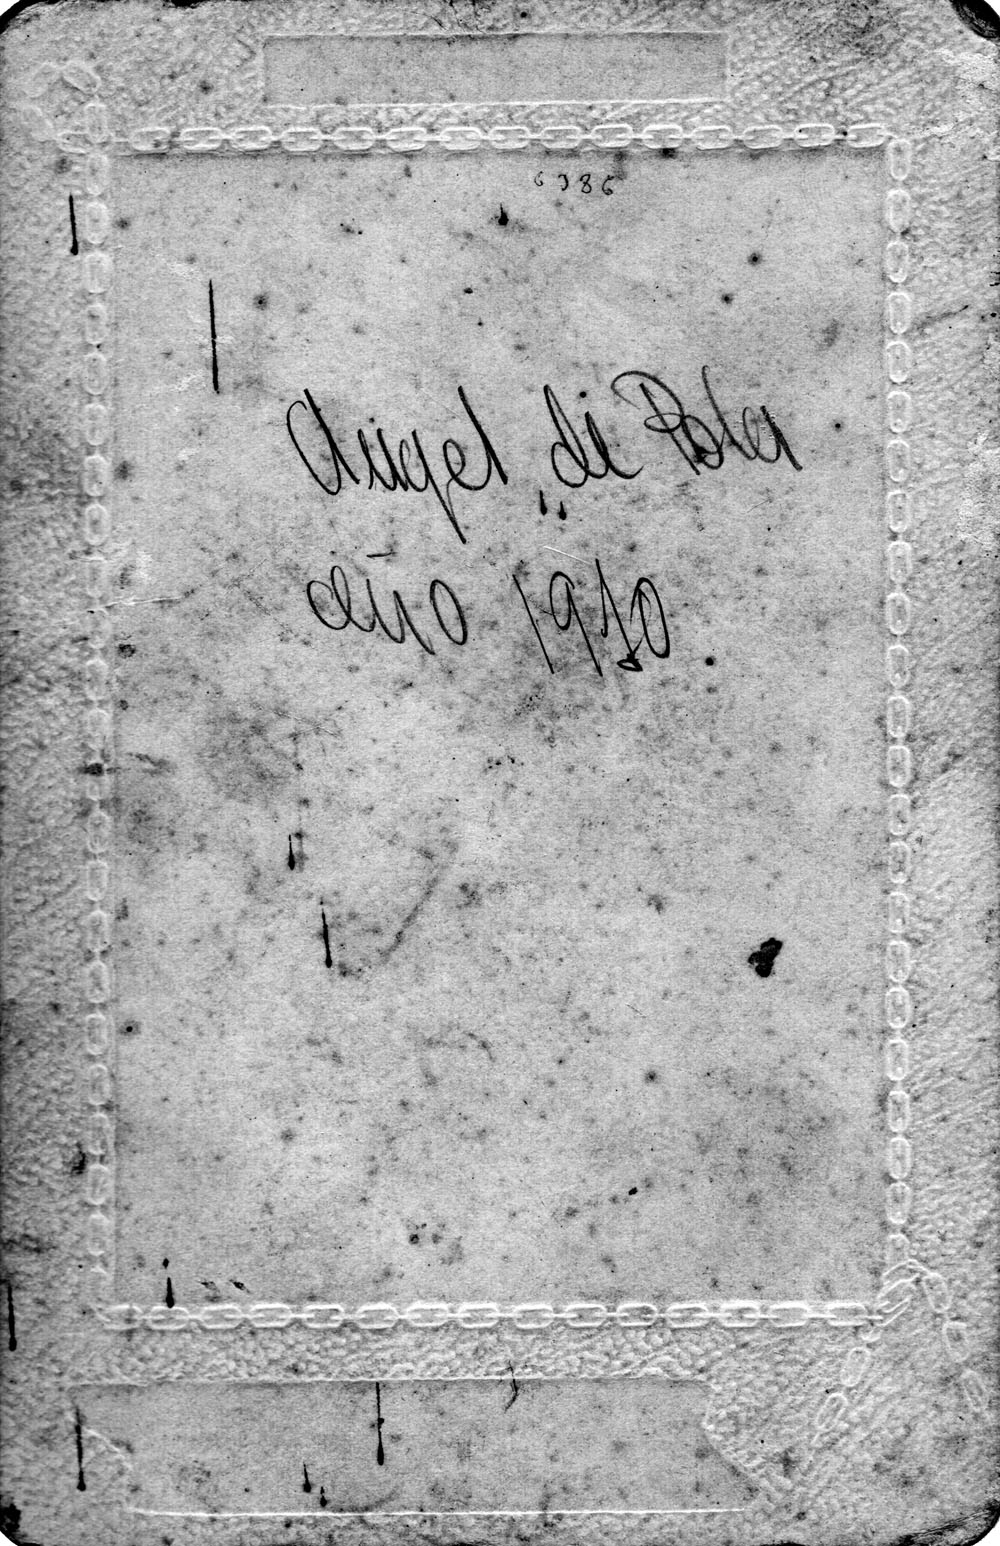 6386
Angel di Pola
año 1910